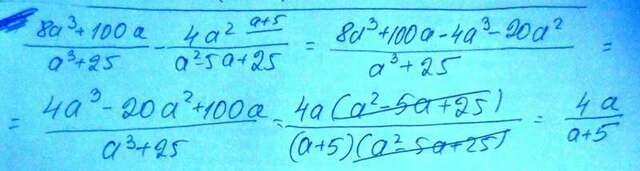 (8a³+100a)/(a³+25) - (4a² a+5)/(a²-5a+25) = (8a³+100a-4a³-20a²)/(a³+25) =
= (4a³-20a²+100a)/(a³+25) = (4a(a²-5a+25))/((a+5)(a²-5a+25)) = 4a/(a+5)